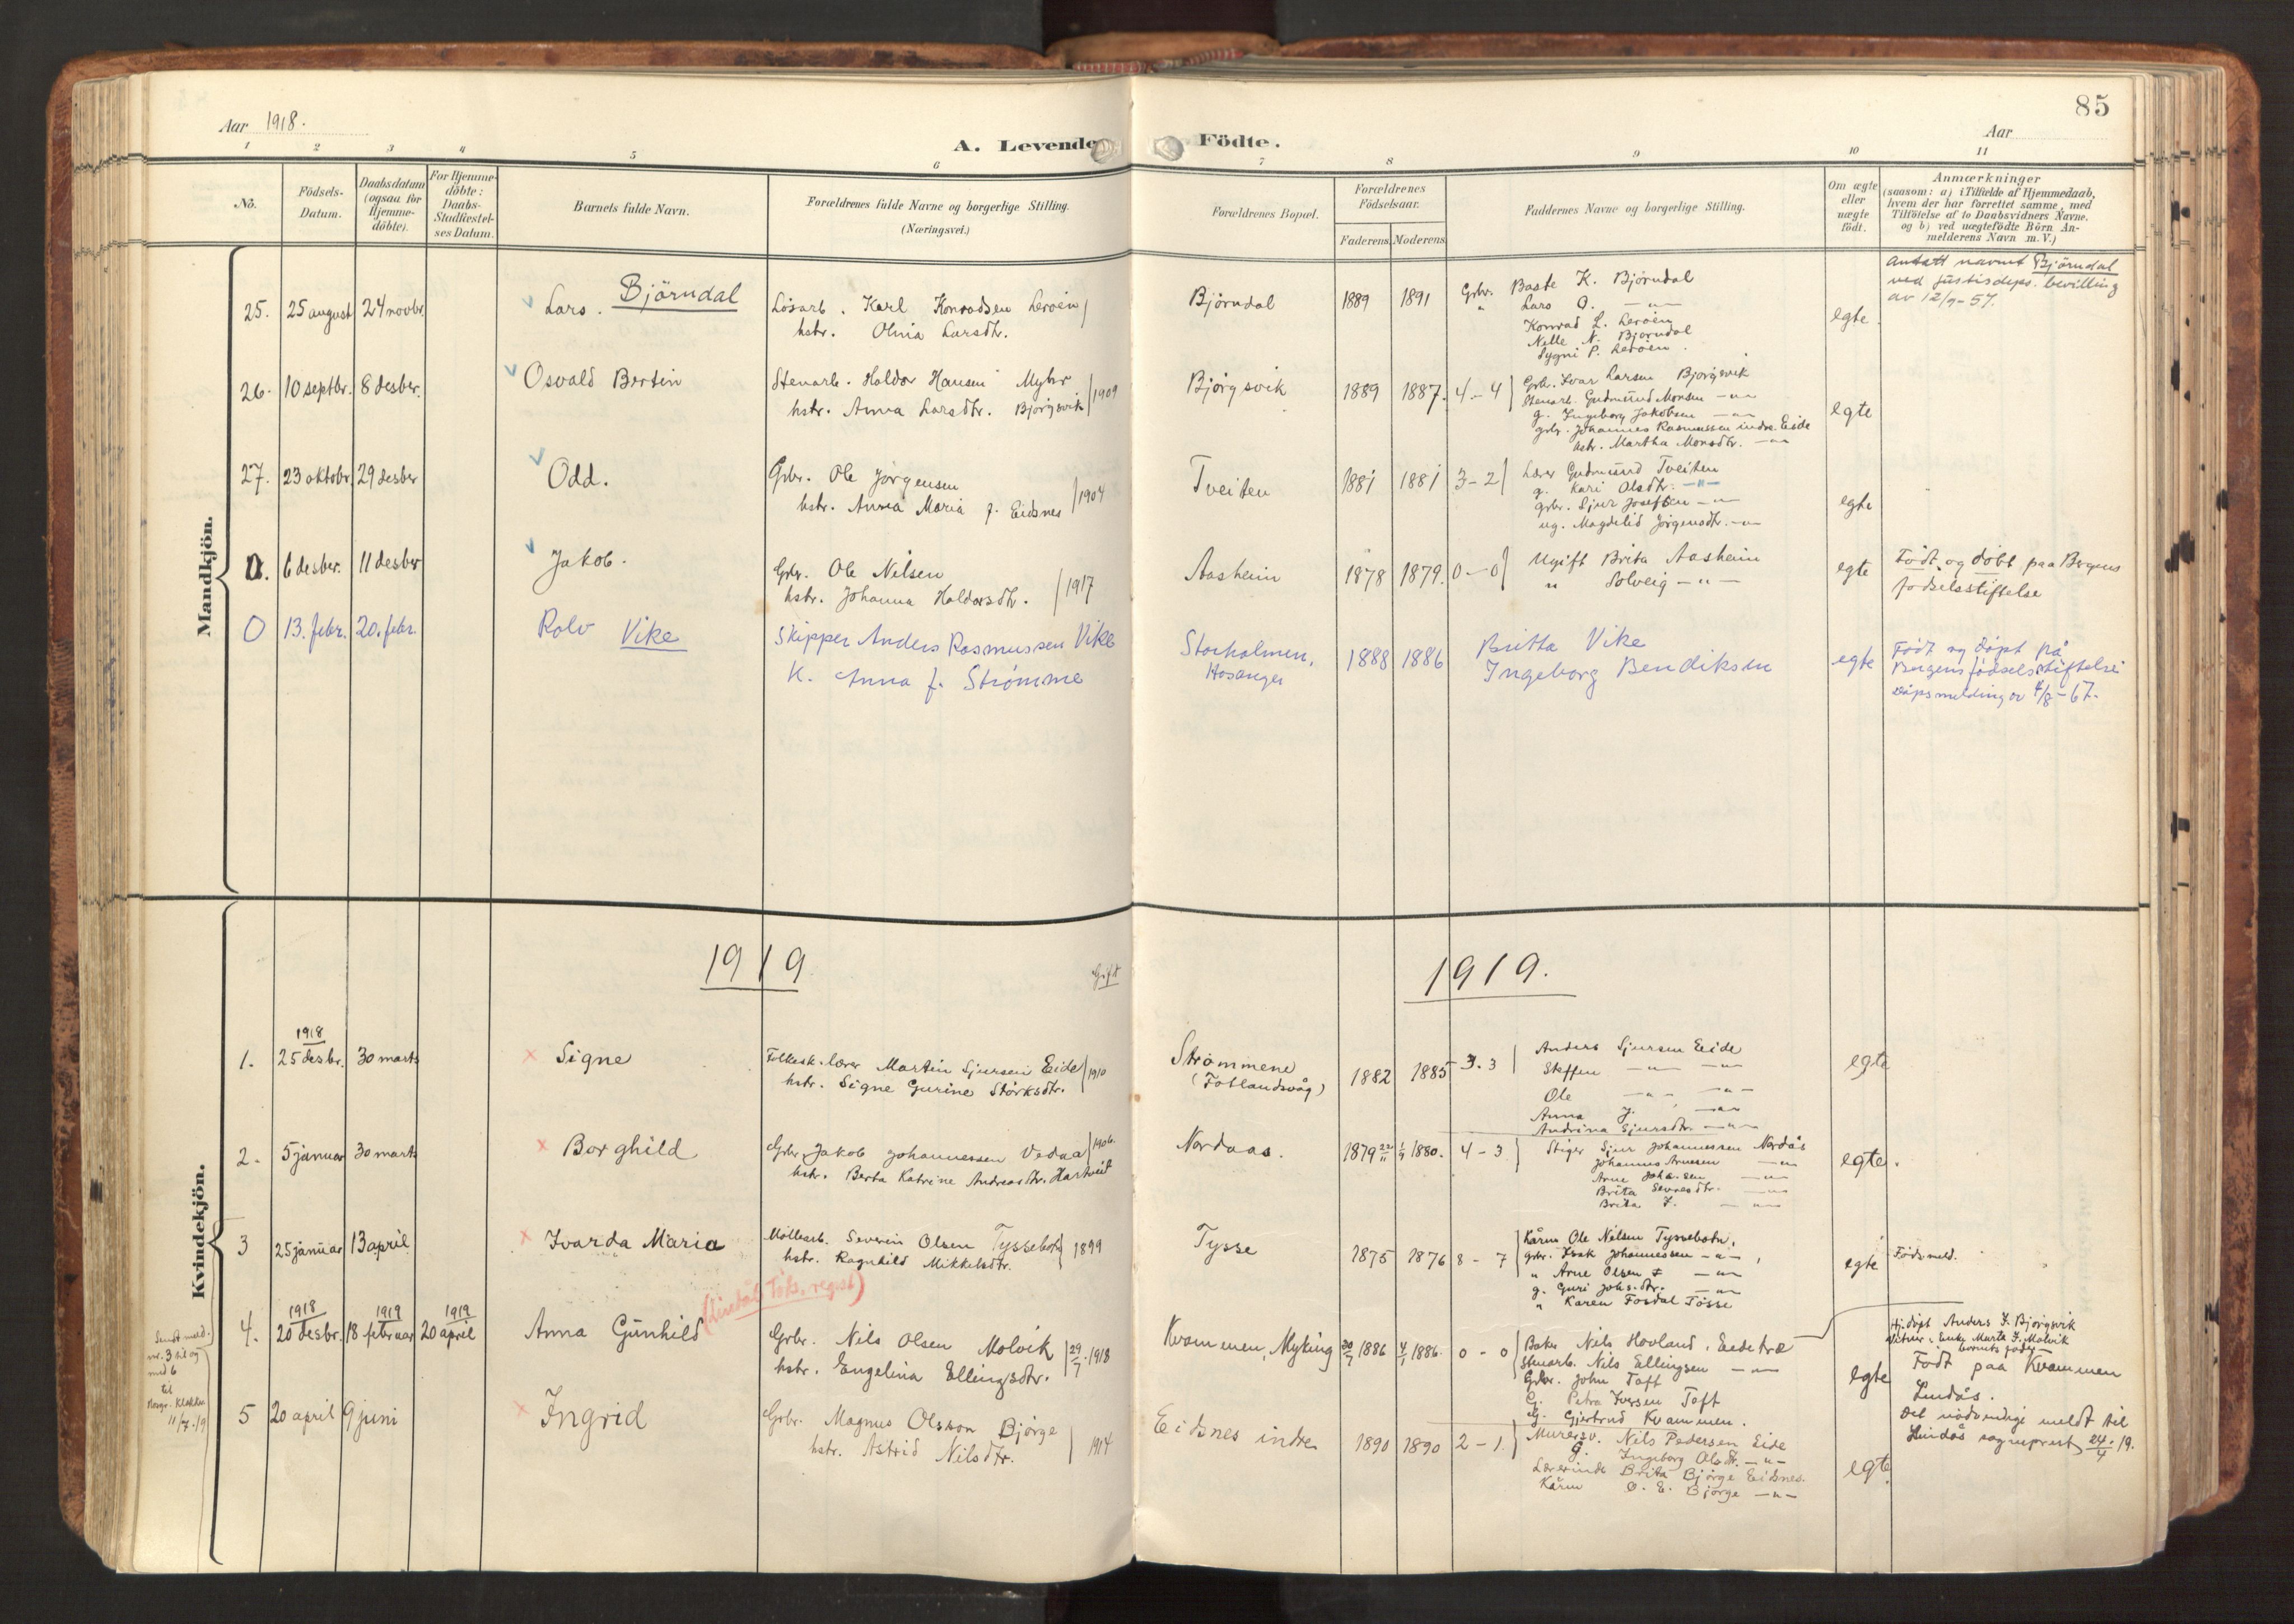 85
Aar 1918.
Aar
A. Levende Födte.
1 2 3 4 5 6 7 8 9 10 11
No.
Födsels-
Datum.
Daabsdatum
(ogsaa for
Hjemme-
döbte).
For Hjemme-
döbte:
Daabs-
Stadfæstel-
ses Datum.
Barnets fulde Navn.
Forældrenes fulde Navne og borgerlige Stilling.
(Næringsvei.)
Forældrenes Bopæl.
Forældrenes
Födselsaar.
Faderens. Moderens.
Faddernes Navne og borgerlige Stilling.
Om ægte
eller
uægte
födt.
Anmærkninger
(saasom: a) i Tilfælde af Hjemmedaab,
hvem der har forrettet samme, med
Tilföielse af to Daabsvidners Navne,
og b) ved uægtefödte Börn An-
melderens Navn m. V.)
Mandkjön.
25. 25 august 24 novbr. Lars. Björndal
Løsarb. Karl Konradsen Lerøen
hstr. Olina Larsdtr.
Björndal 1889 1891
Grbr. Baste K. Björndal
" Lars O. —"—
Konrad L. Lerøen
Nelle N. Björndal
Sygni P. Lerøen.
egte.
Antatt navnet Björndal
ved justisdeps. bevilling
av 12/9-57.
26. 10 septbr. 8 desber. Osvald Bertin
Stenarb. Haldor Hansen Myhr
hstr. Anna Larsdtr. Bjørgsvik 1909
Bjørgsvik 1889 1887. 4-4
Grb. Ivar Larsen Bjørgsvik
Stenarb. Gudmund Monsen —"—
g. Ingeborg Jakobsen —"—
grbr. Johannes Rasmussen indre Eide
hstr. Martha Monsdtr. —"—
egte
27. 23 oktobr. 29 desber Odd.
Grbr. Ole Jørgensen
hstr. Anna Maria f. Eidsnes 1904
Tveiten 1881 1881 3-2
Lærer Gudmund Tveiten
g. Kari Olsdtr. —"—
grbr. Sjur Josefsen —"—
ug. Magdelid Jørgensdtr. —"—
egte
0. 6 desber. 11 desber Jakob.
Grbr. Ole Nilsen
hstr. Johanna Haldorsdtr. 1917
Aasheim 1878 1879. 0-0
Ugift Brita Aasheim
" Solveig —"—
egte
Født og døbt paa Bergens
fødselsstiftelse
0 13. febr. 20. febr. Rolv Vike
Skipper Anders Rasmussen Vike
K. Anna f. Strømme
Storholmen,
Hosanger
1888 1886
Britta Vike
Ingeborg Bendiksen
egte
Født og døpt på
Bergens fødselsstiftelse
Dåpsmelding av 4/8-67.
Kvindekjön.
1919 1919.
Gift
1. 1918
25 desbr. 30 marts Signe
Folkesk.lærer Martin Sjursen Eide
hstr. Signe Gurine Størksdtr. 1910
Strømmene
(Fotlandsvåg)
1882 1885 3.3
Anders Sjursen Eide
Steffen —"— —"—
Ole —"— —"—
Anna J. —"—
Andrina Sjursdtr. —"—
egte
2. 5 januar 30 marts Borghild
Grbr. Jakob Johannessen Vadaa
hstr. Berta Katrine Andreasdtr. Hartveit 1906.
Nordaas. 1879 1880. 4-3
Stiger Sjur Johannessen Nordås
Johannes Arnesen —"—
Arne Johs.sen —"—
Brita Sevresdtr. —"—
Brita J. —"—
egte.
3 25 januar 13 april Ivarda Maria
Møllearb. Severin Olsen Tyssebotn
hstr. Ragnhild Mikkelsdtr. 1899
Tysse 1875 1876 8-7
Kårm. Ole Nilsen Tyssebotn.
grbr. Isak Johannessen —"—
" Arne Olsen —"—
g. Guri Johs.dtr. —"—
" Karen Fosdal Tösse
egte
Føds.meld.
4. 1918
20 desbr. 1919
18 februar 1919
20 april Anna Gunhild
Grbr. Nils Olsen Molvik
hstr. Engelina Ellingsdtr. 29/7. 1918
Kvammen, Myking 20/7 1886 4/1 1886. 0-0
Baker Nils Hovland, Eidetræ
Stenarb. Nils Ellingsen —"—
Grbr. John Toft
G. Petra Iversen Toft
G. Gjertrud Kvammen.
egte
Hj.døpt Anders J. Bjørgsvik
Født paa Kvammen
Lindås.
Det nødvendige meldt til
Lindås sogneprest 24/4. 19.
5 20 april 9 juni Ingrid
Grbr. Magnus Olsson Bjørge
hstr. Astrid Nilsdtr. 1914
Eidsnes indre 1890 1890 2-1.
Murersv. Nils Pedersen Eide
G. Ingeborg Olsdtr. —"—
Lærerinde Brita Bjørge Eidsnes.
Kårm O. E. Bjørge —"—
egte.
Sendt meld.
nr. 3 til og
med 6
til
11/7.19